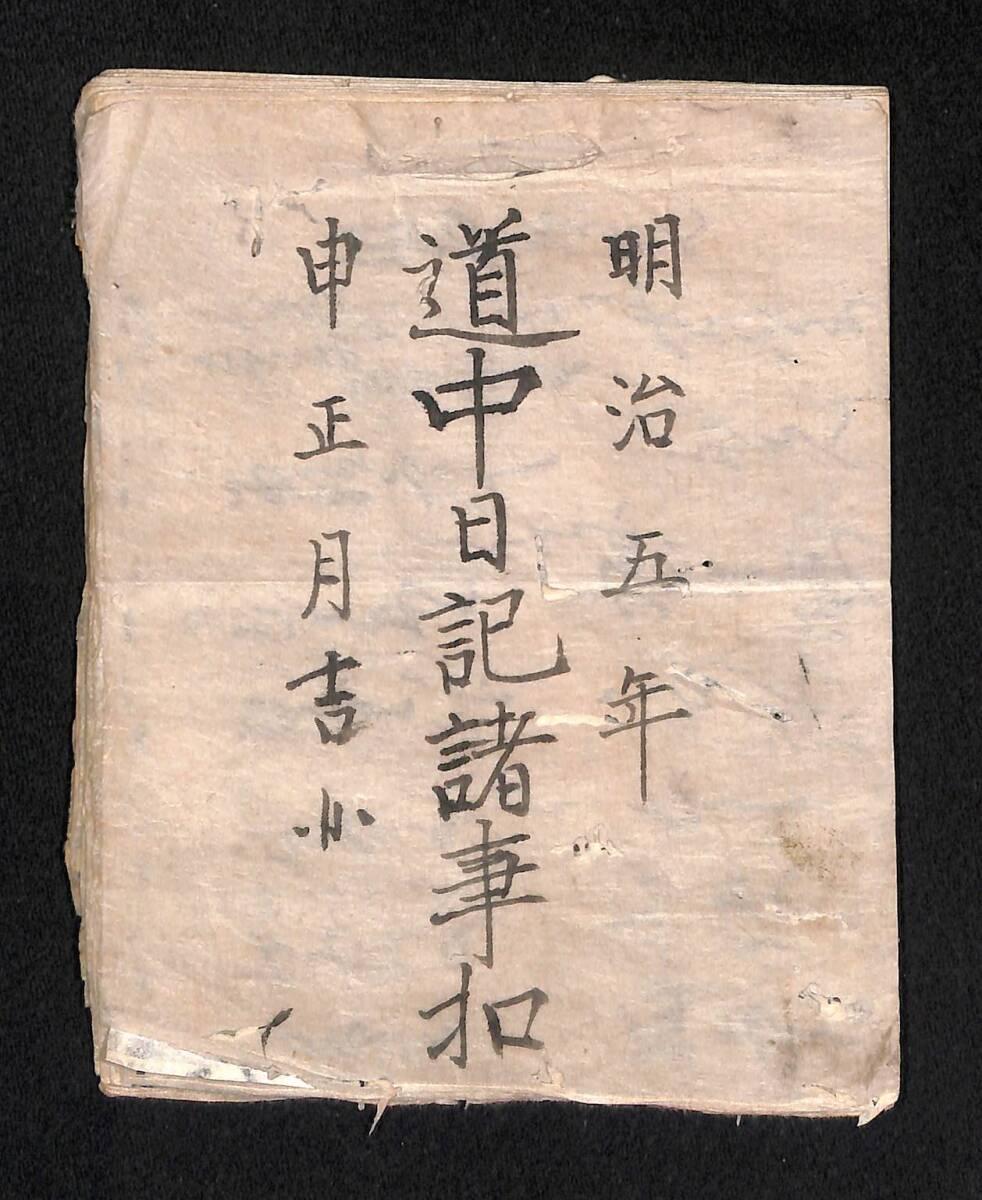 明治五年
道中日記諸事扣
申正月吉